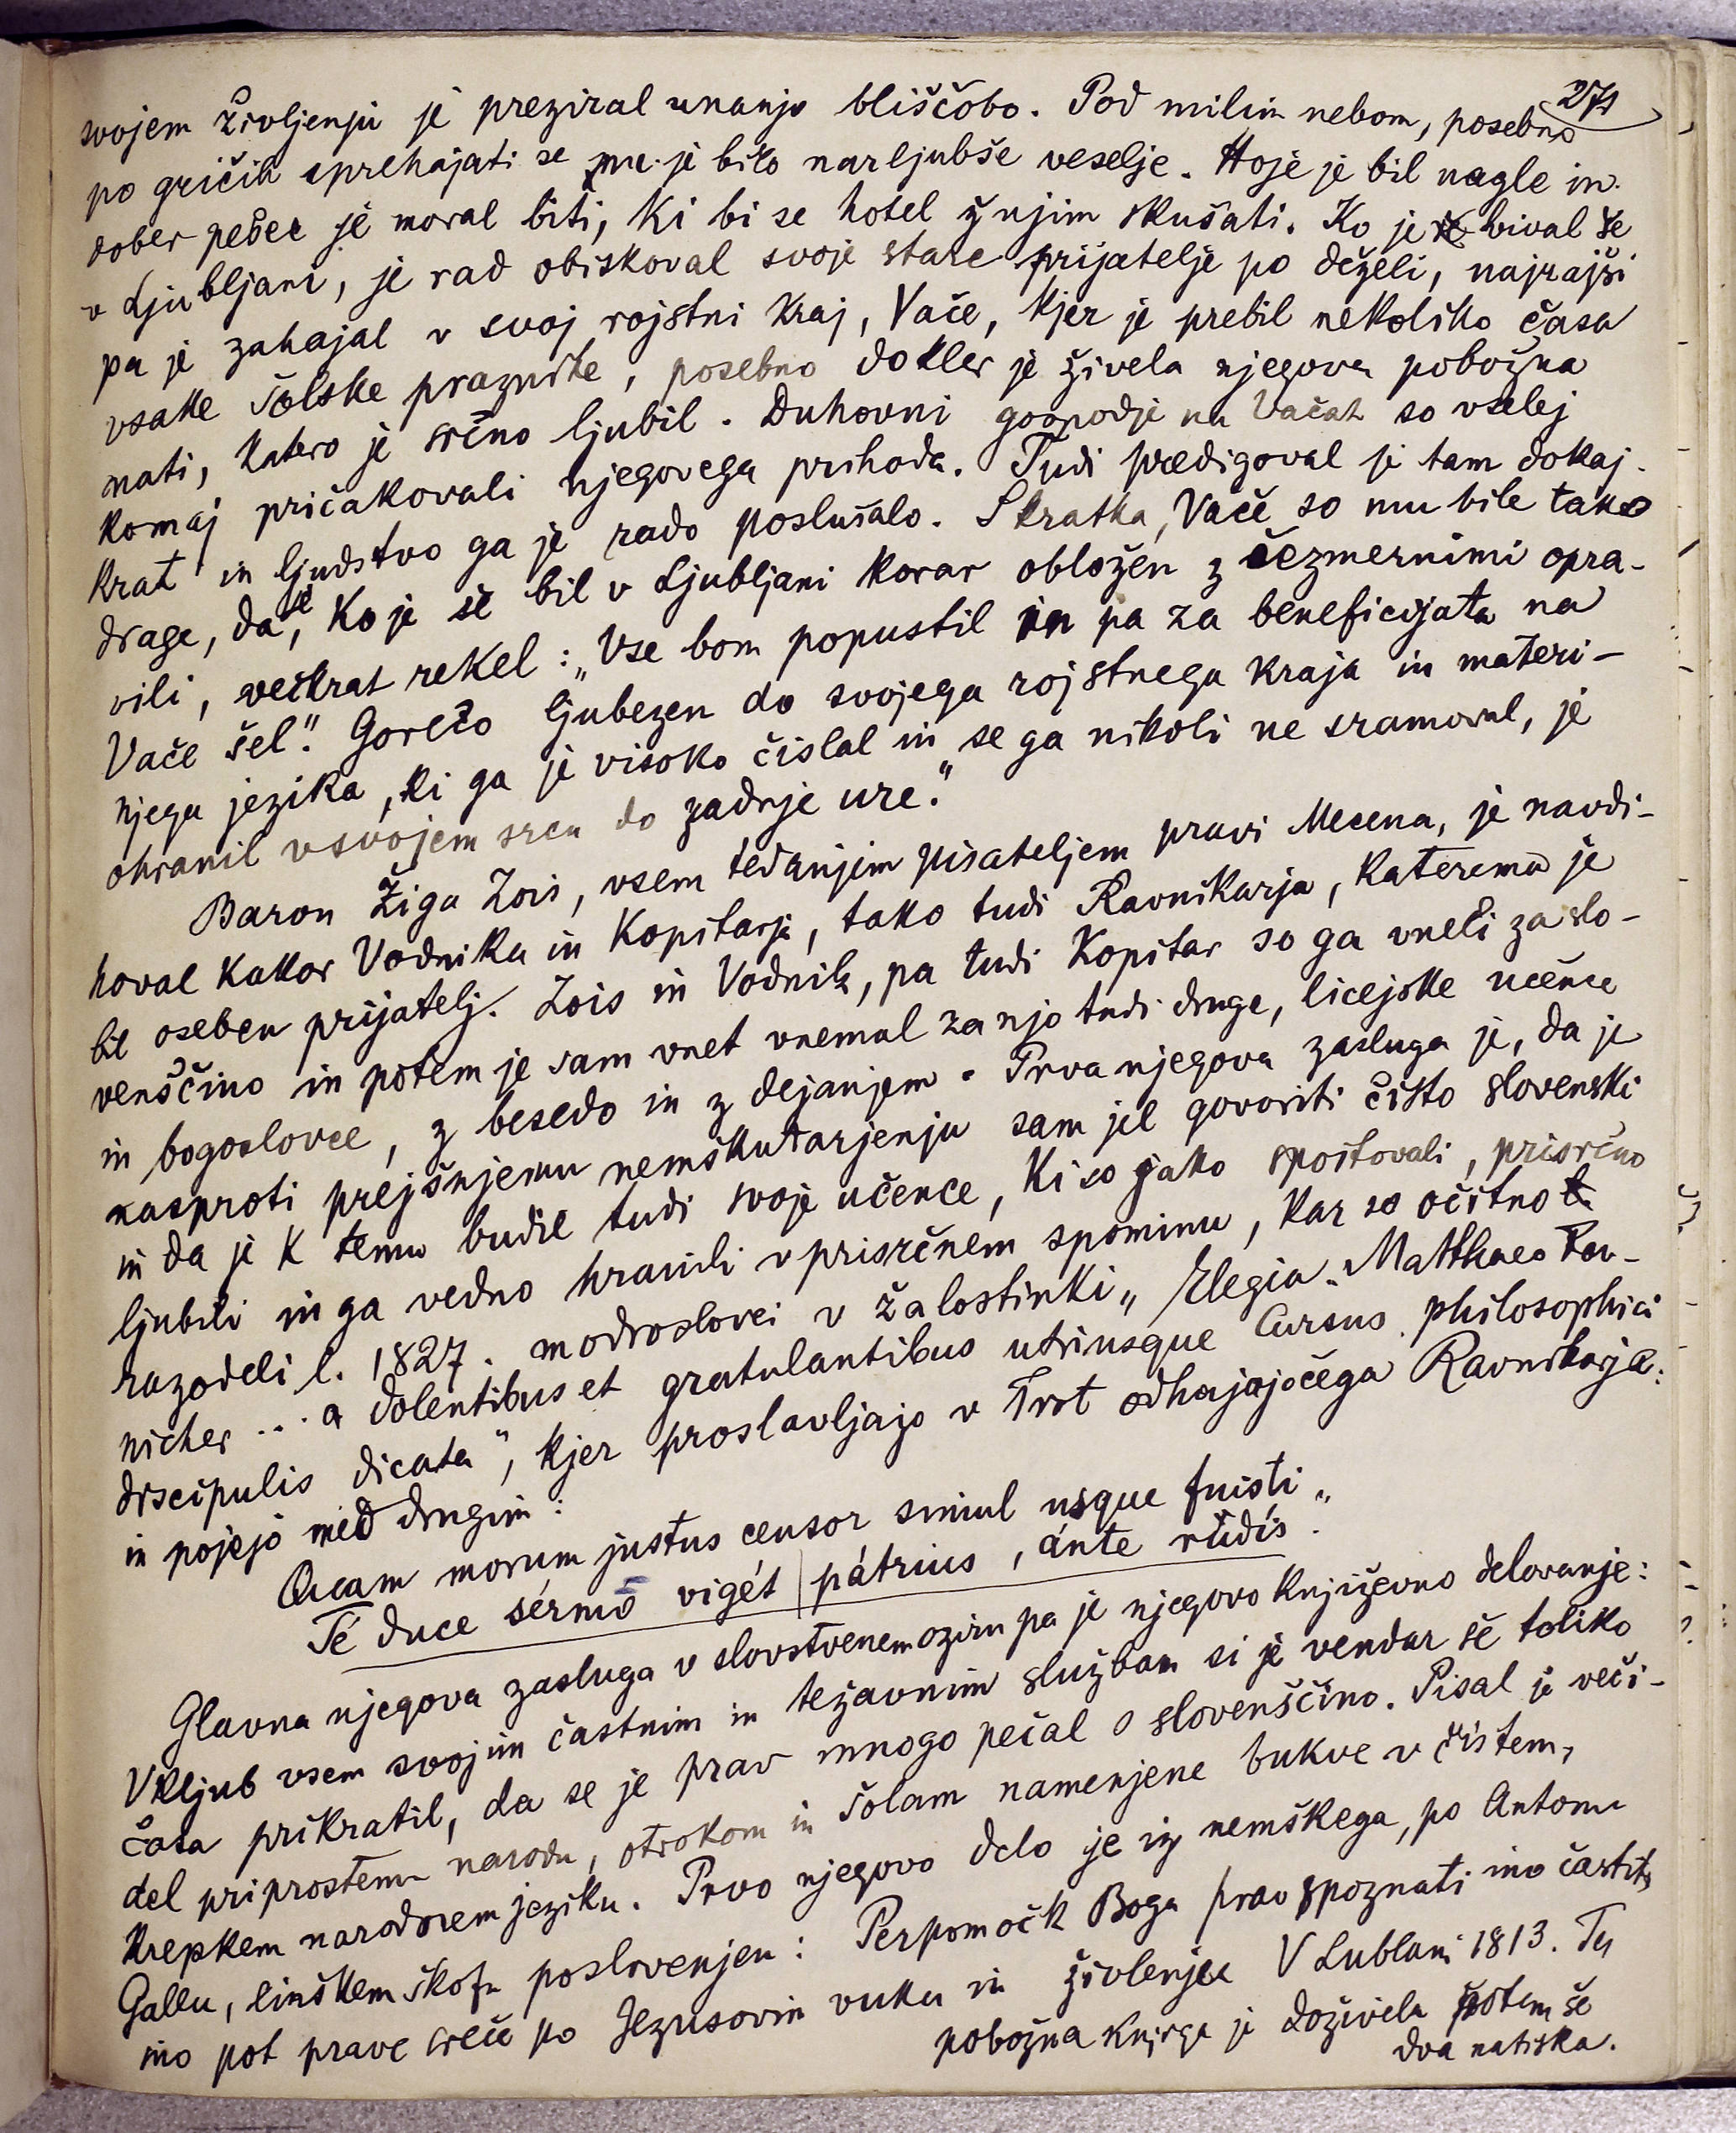 271
svojem življenju je preziral unanjo bliščobo. Pod milim nebom, posebno
po gričih sprehajati se mu je bilo narljubše veselje. Hoje je bil nagle in
dober pešec je moral biti, ki bi se hotel ž njim skušati. Ko je bival še
v Ljubljani, je rad obiskoval svoje stare prijatelje po deželi, najrajši
pa je zahajal v svoj rojstni kraj, Vače, kjer je prebil nekoliko časa
vsake šolske praznike, posebno dokler je živela njegova pobožna
mati, katero je srčno ljubil. Duhovni gospodje na Vačah so vselej
komaj pričakovali njegovega prihoda. Tudi predigoval je tam dokaj-
krat in ljudstvo ga je rado poslušalo. Skratka, Vače so mu bile tako
drage, da je, ko je še bil v Ljubljani korar obložen z čezmernimi opra-
vili, večkrat rekel: „Vse bom popustil in pa za beneficijata na
Vače šel." Gorečo ljubezen do svojega rojstnega kraja in materi-
njega jezika, ki ga je visoko čislal in se ga nikoli ne sramoval, je
ohranil v svojem srcu do zadnje ure."
Baron Žiga Zois, vsem tedanjim pisateljem pravi Mecena, je navdi-
hoval kakor Vodnika in Kopitarja, tako tudi Ravnikarja, kateremu je
bil oseben prijatelj. Zois in Vodnik, pa tudi Kopitar so ga vneli za slo-
venščino in potem je sam vnet vnemal za njo tudi druge, licejske učence
in bogoslovce, z besedo in z dejanjem. Prva njegova zasluga je, da je
nasproti prejšnjemu nemškutarjenju sam jel govoriti čisto slovenski
in da je k temu budil tudi svoje učence, ki so jako spoštovali, prisrčno
ljubili in ga vedno hranili v prisrčnem spominu, kar so očitno
razodeli l. 1827. modroslovci v žalostinki „Elegia Matthaeo Rav-
nicher ... a dolentibus et gratulantibus utriusque Cursus philosophici
discipulis dicata", kjer proslavljajo v Trst odhajajočega Ravnikarja:
in pojejo med drugim:
Quam morum justus censor simul usque fuisti „
Té duce sérmō vigét | pátrius, ánte rŭdís.
Glavna njegova zasluga v slovstvenem oziru pa je njegovo književno delovanje:
Vkljub vsem svojim častnim in težavnim službam si je vendar še toliko
časa prikratil, da se je prav mnogo pečal s slovenščino. Pisal je veči-
del priprostemu narodu, otrokom in šolam namenjene bukve v čistem,
krepkem narodnem jeziku. Prvo njegovo delo je iz nemškega, po Antonu
Gallu, linškem škofu poslovenjen: Perpomočk Boga prav spoznati ino častiti
ino pot prave sreče po Jezusovim vuku in živlenju V Lublani 1813. Ta
pobožna knjiga je doživela potem še
dva natiska.